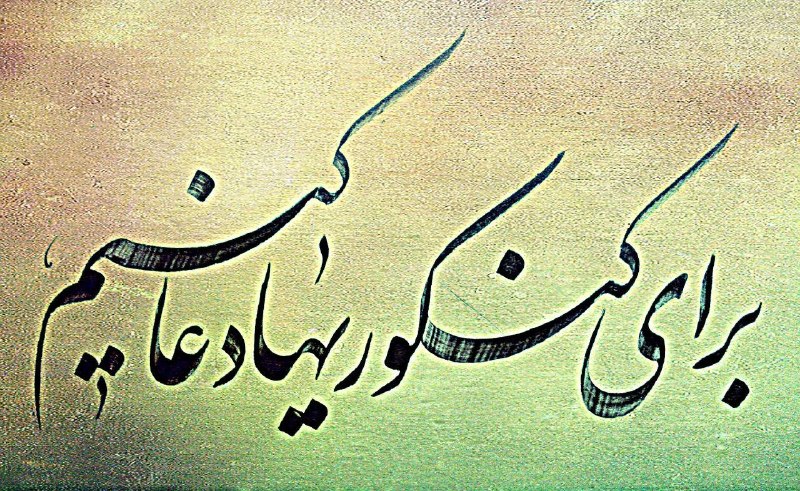 برای کنکوریها دعا کنیم